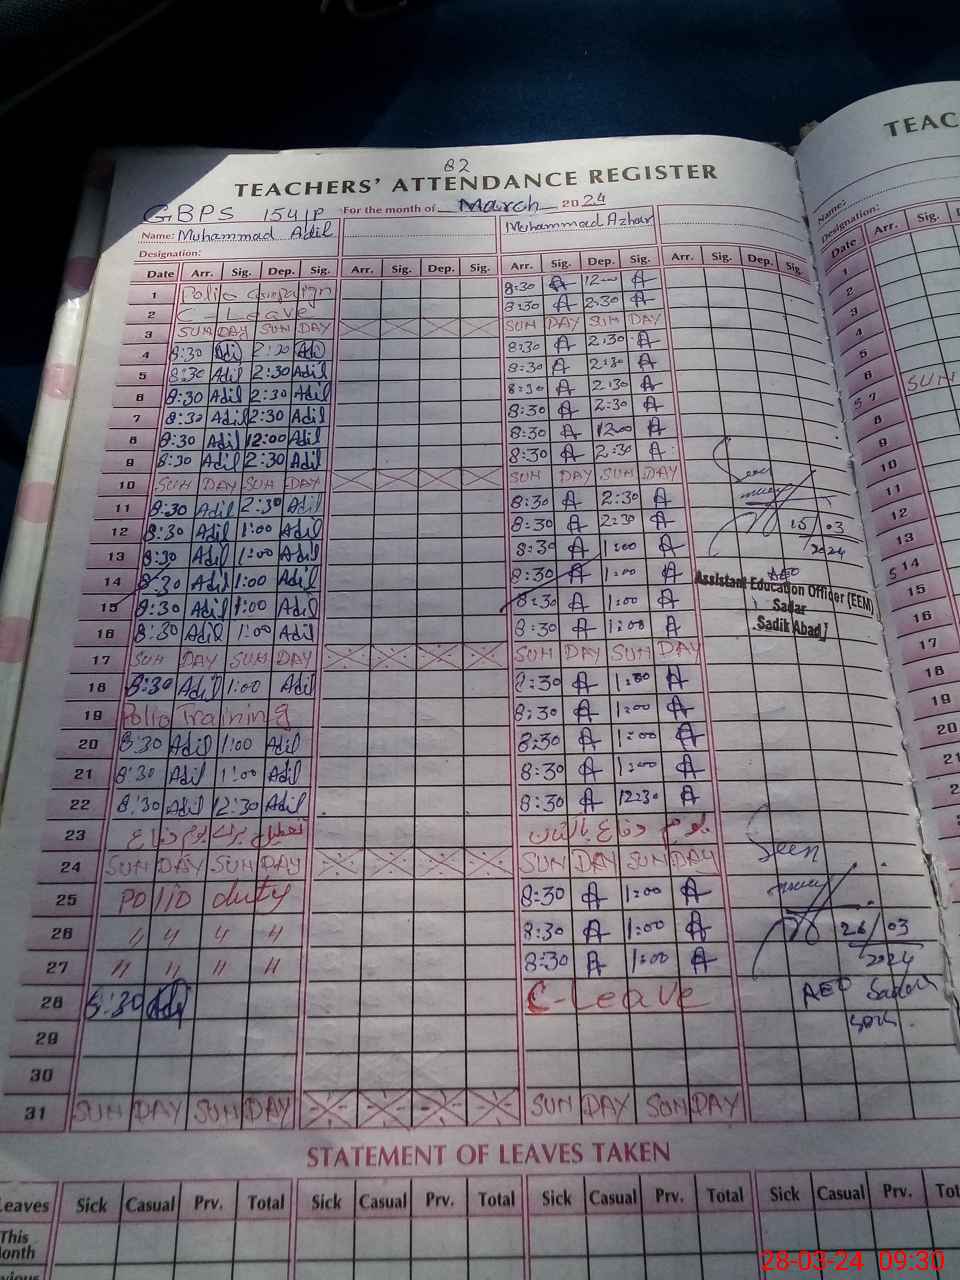 82
TEACHERS' ATTENDANCE REGISTER
GBPS 154/P For the month of March 2024
Name: Muhammad Adil Muhammad Azhar
Designation:
Date Arr. Sig. Dep. Sig. Arr. Sig. Dep. Sig. Arr. Sig. Dep. Sig. Arr. Sig. Dep. Sig.
1 Polio campaign 8:30 A 12:00 A
2 C-Leave 8:30 A 2:30 A
3 SUN DAY SUN DAY SUN DAY SUN DAY
4 8:30 Adil 2:30 Adil 8:30 A 2:30 A
5 8:30 Adil 2:30 Adil 8:30 A 2:30 A
6 8:30 Adil 2:30 Adil 8:30 A 2:30 A
7 8:30 Adil 2:30 Adil 8:30 A 2:30 A
8 8:30 Adil 12:00 Adil 8:30 A 12:00 A
9 8:30 Adil 2:30 Adil 8:30 A 2:30 A
10 SUN DAY SUN DAY SUN DAY SUN DAY
11 8:30 Adil 2:30 Adil 8:30 A 2:30 A
12 8:30 Adil 1:00 Adil 8:30 A 2:30 A
13 8:30 Adil 1:00 Adil 8:30 A 1:00 A
14 8:30 Adil 1:00 Adil 8:30 A 1:00 A
15 8:30 Adil 1:00 Adil 8:30 A 1:00 A
16 8:30 Adil 1:00 Adil 8:30 A 1:00 A
17 SUN DAY SUN DAY SUN DAY SUN DAY
18 8:30 Adil 1:00 Adil 8:30 A 1:00 A
19 Polio Training 8:30 A 1:00 A
20 8:30 Adil 1:00 Adil 8:30 A 1:00 A
21 8:30 Adil 1:00 Adil 8:30 A 1:00 A
22 8:30 Adil 12:30 Adil 8:30 A 12:30 A
23 تعطیل یوم دفاع
24 SUN DAY SUN DAY SUN DAY SUN DAY
25 Polio duty 8:30 A 1:00 A
26 〃 〃 〃 〃 8:30 A 1:00 A
27 〃 〃 〃 〃 8:30 A 1:00 A
28 8:30 Adil C-Leave
29
30
31 SUN DAY SUN DAY SUN DAY SUN DAY
Seen
15/03
2024
AEO
Assistant Education Officer (EEM)
Sadar
Sadik Abad
Seen
26/03
2024
AEO Sadar
STATEMENT OF LEAVES TAKEN
Leaves Sick Casual Prv. Total Sick Casual Prv. Total Sick Casual Prv. Total Sick Casual Prv.
This
Month
TEAC
Name:
Designation:
Date Arr. Sig.
1
2
3
4
5
6
7 SUN
8
9
10
11
12
13
14
15
16
17
18
19
20
28-03-24 09:30